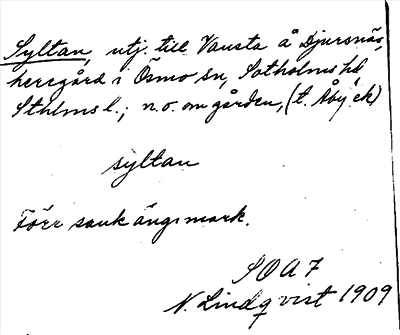 Syltan, utj. till Vansta å Djursnäs,
herregård i Ösmo sn, Sotholms hd
Sthlms l.; n.o. om gården, (t. Åby ek)
syltan
Förr sank ängsmark.
SOA 7
N. Lindqvist 1909